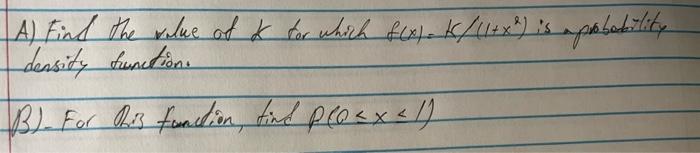 A) Find the value of k for which f(x) = K/(1+x²) is a probability
density function.
B)- For this function, find P(0 ≤ x ≤ 1)